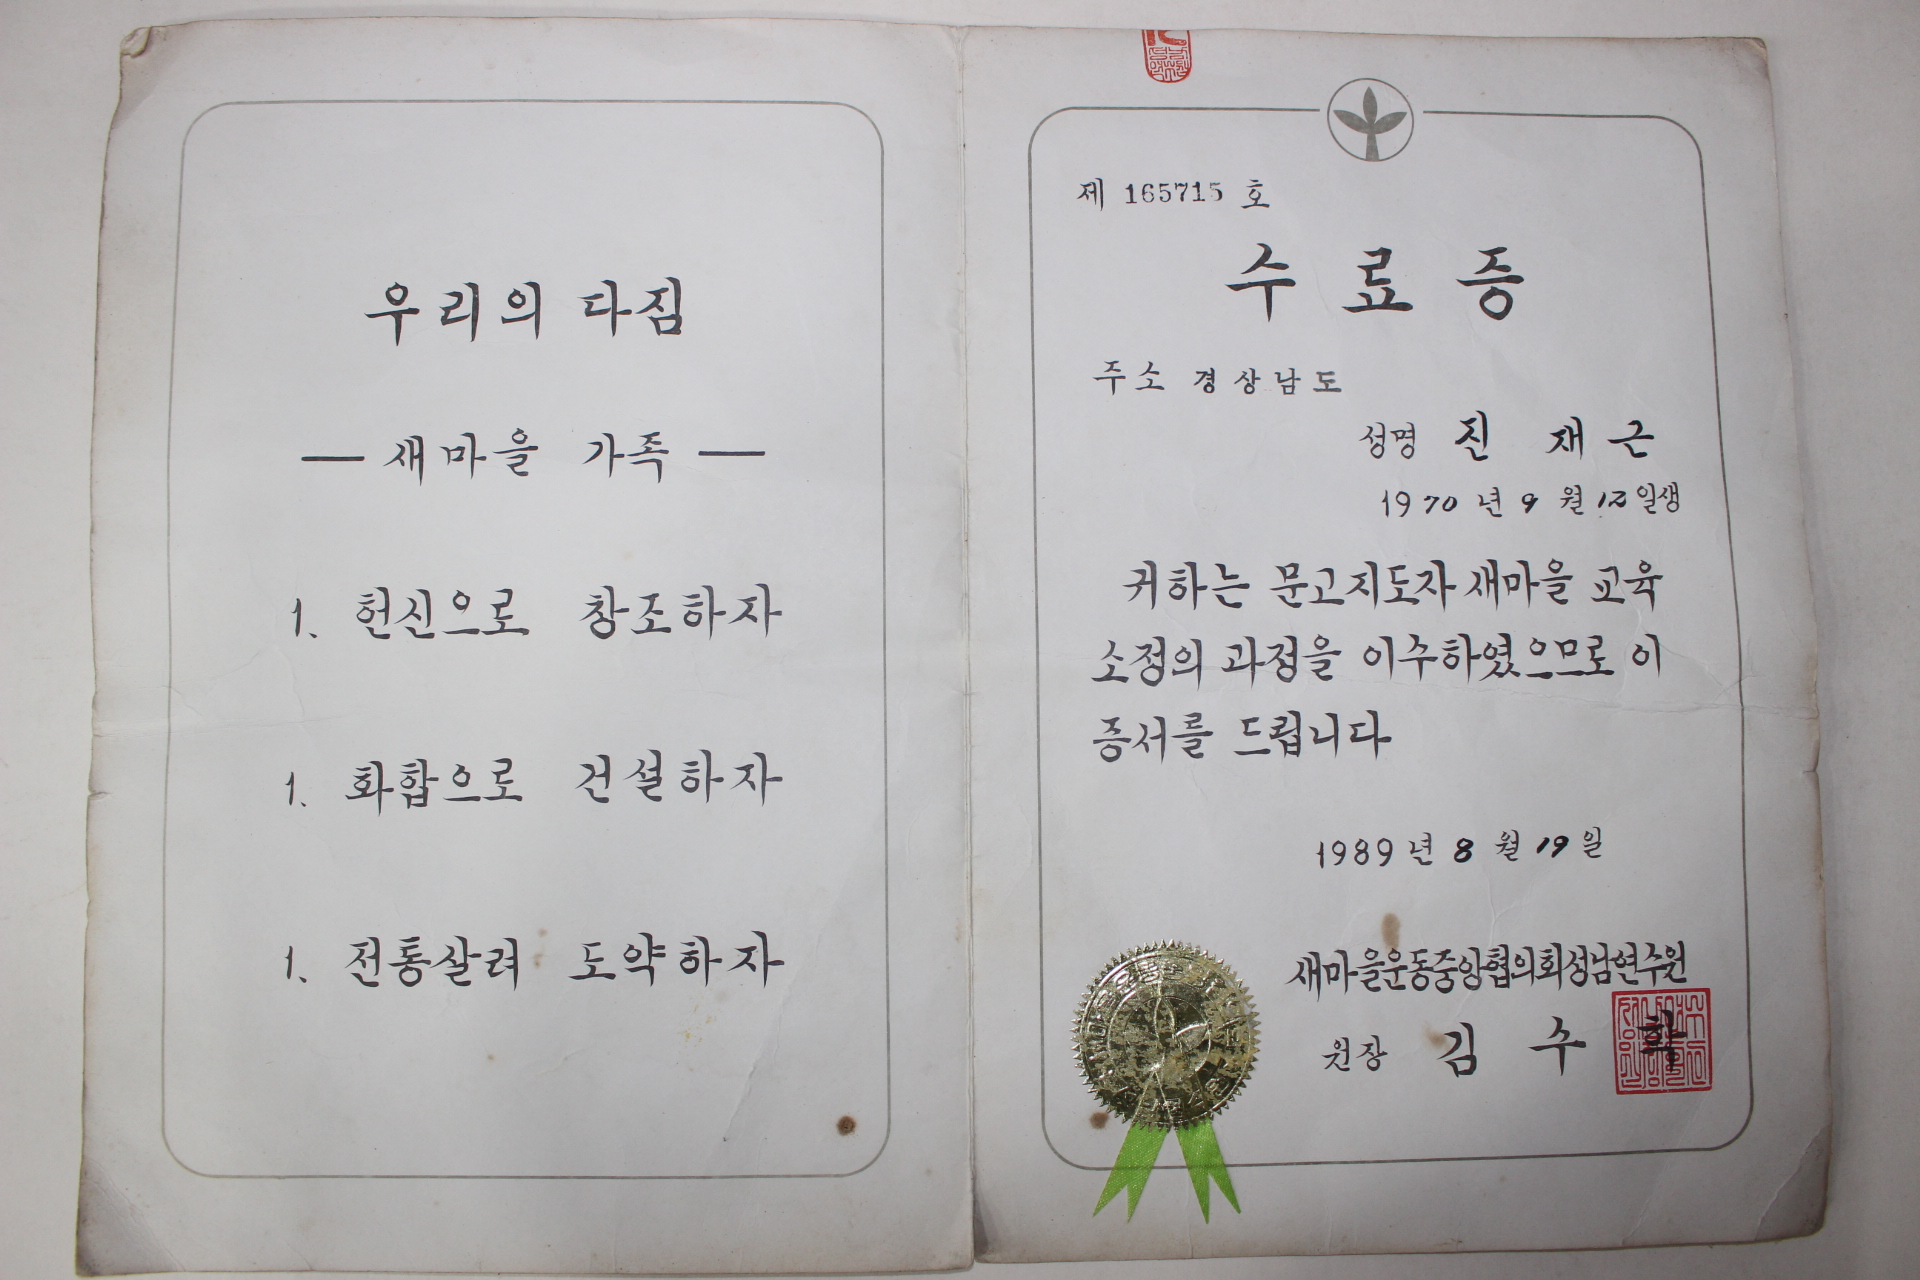 우리의 다짐
— 새마을 가족 —
1. 헌신으로 창조하자
1. 화합으로 건설하자
1. 전통살려 도약하자
제 165715 호
수료증
주소 경상남도
성명 진 재 근
1970년 9월 12일생
귀하는 문고지도자 새마을 교육
소정의 과정을 이수하였으므로 이
증서를 드립니다
1989년 8월 19일
새마을운동중앙협의회성남연수원
원장 김 수 학